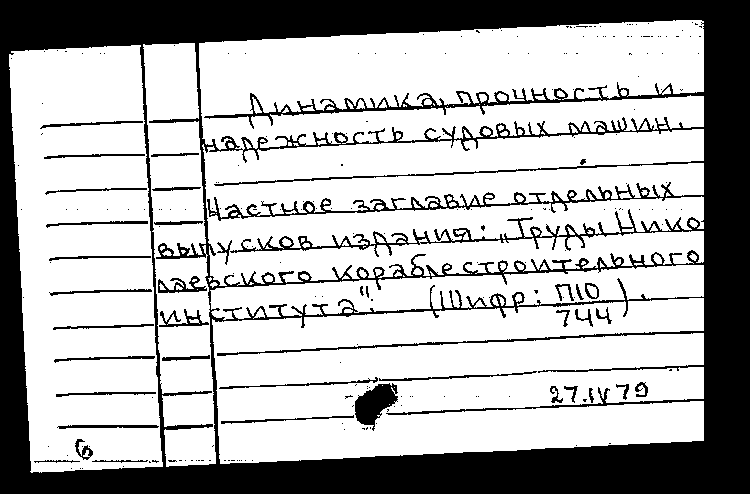 Динамика, прочность и
надежность судовых машин.
Частное заглавие отдельных
выпусков издания: „Труды Нико-
лаевского кораблестроительного
института". (Шифр: П10/744).
27.IV 79
6